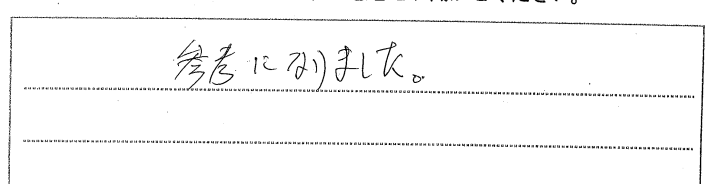 参考になりました。